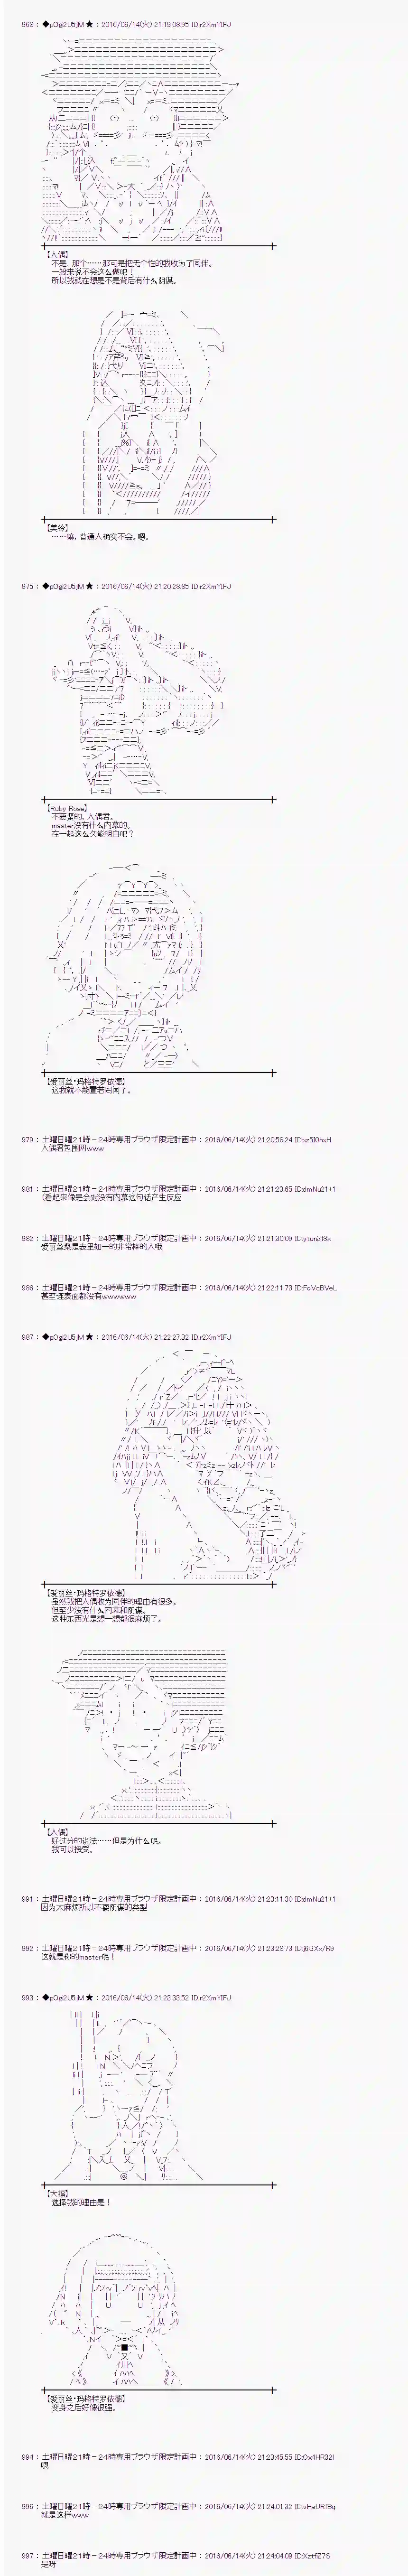 968 : ◆pOgi2U5jM ★ : 2016/06/14(火) 21:19:08.95 ID:r2XmYIFJ
【人偶】
不是，那个……那可是把无个性的我收为了同伴。
一般来说不会这么做吧！
所以我就在想是不是背后有什么阴谋。
【美铃】
……嘛，普通人确实不会。嗯。
975 : ◆pOgi2U5jM ★ : 2016/06/14(火) 21:20:28.85 ID:r2XmYIFJ
【Ruby Rose】
不要紧的，人偶君。
master没有什么内幕的。
在一起这么久能明白吧？
【爱丽丝·玛格特罗依德】
这我就不能置若罔闻了。
979 : 土曜日曜２１時－２４時専用ブラウザ限定計画中 : 2016/06/14(火) 21:20:58.24 ID:xz5I0hxH
人偶君包围网www
981 : 土曜日曜２１時－２４時専用ブラウザ限定計画中 : 2016/06/14(火) 21:21:23.65 ID:dmNu21+1
(看起来像是会对没有内幕这句话产生反应
982 : 土曜日曜２１時－２４時専用ブラウザ限定計画中 : 2016/06/14(火) 21:21:30.09 ID:ytun3f8x
爱丽丝桑是表里如一的非常棒的人哦
986 : 土曜日曜２１時－２４時専用ブラウザ限定計画中 : 2016/06/14(火) 21:22:11.73 ID:FdVcBVeL
甚至连表面都没有wwwwww
987 : ◆pOgi2U5jM ★ : 2016/06/14(火) 21:22:27.32 ID:r2XmYIFJ
【爱丽丝·玛格特罗依德】
虽然我把人偶收为同伴的理由有很多。
但至少没有什么内幕和阴谋。
这种东西光是想一想都很麻烦了。
【人偶】
好过分的说法……但是为什么呢。
我可以接受。
991 : 土曜日曜２１時－２４時専用ブラウザ限定計画中 : 2016/06/14(火) 21:23:11.30 ID:dmNu21+1
因为太麻烦所以不耍阴谋的类型
992 : 土曜日曜２１時－２４時専用ブラウザ限定計画中 : 2016/06/14(火) 21:23:28.73 ID:j6GXx/R9
这就是俺的master呢！
993 : ◆pOgi2U5jM ★ : 2016/06/14(火) 21:23:33.52 ID:r2XmYIFJ
【大福】
选择我的理由是！
【爱丽丝·玛格特罗依德】
变身之后好像很强。
994 : 土曜日曜２１時－２４時専用ブラウザ限定計画中 : 2016/06/14(火) 21:23:45.55 ID:Ox4HR32I
嗯
996 : 土曜日曜２１時－２４時専用ブラウザ限定計画中 : 2016/06/14(火) 21:24:01.32 ID:vHaURfBq
就是这样www
997 : 土曜日曜２１時－２４時専用ブラウザ限定計画中 : 2016/06/14(火) 21:24:04.09 ID:XztfiZ7S
是呀